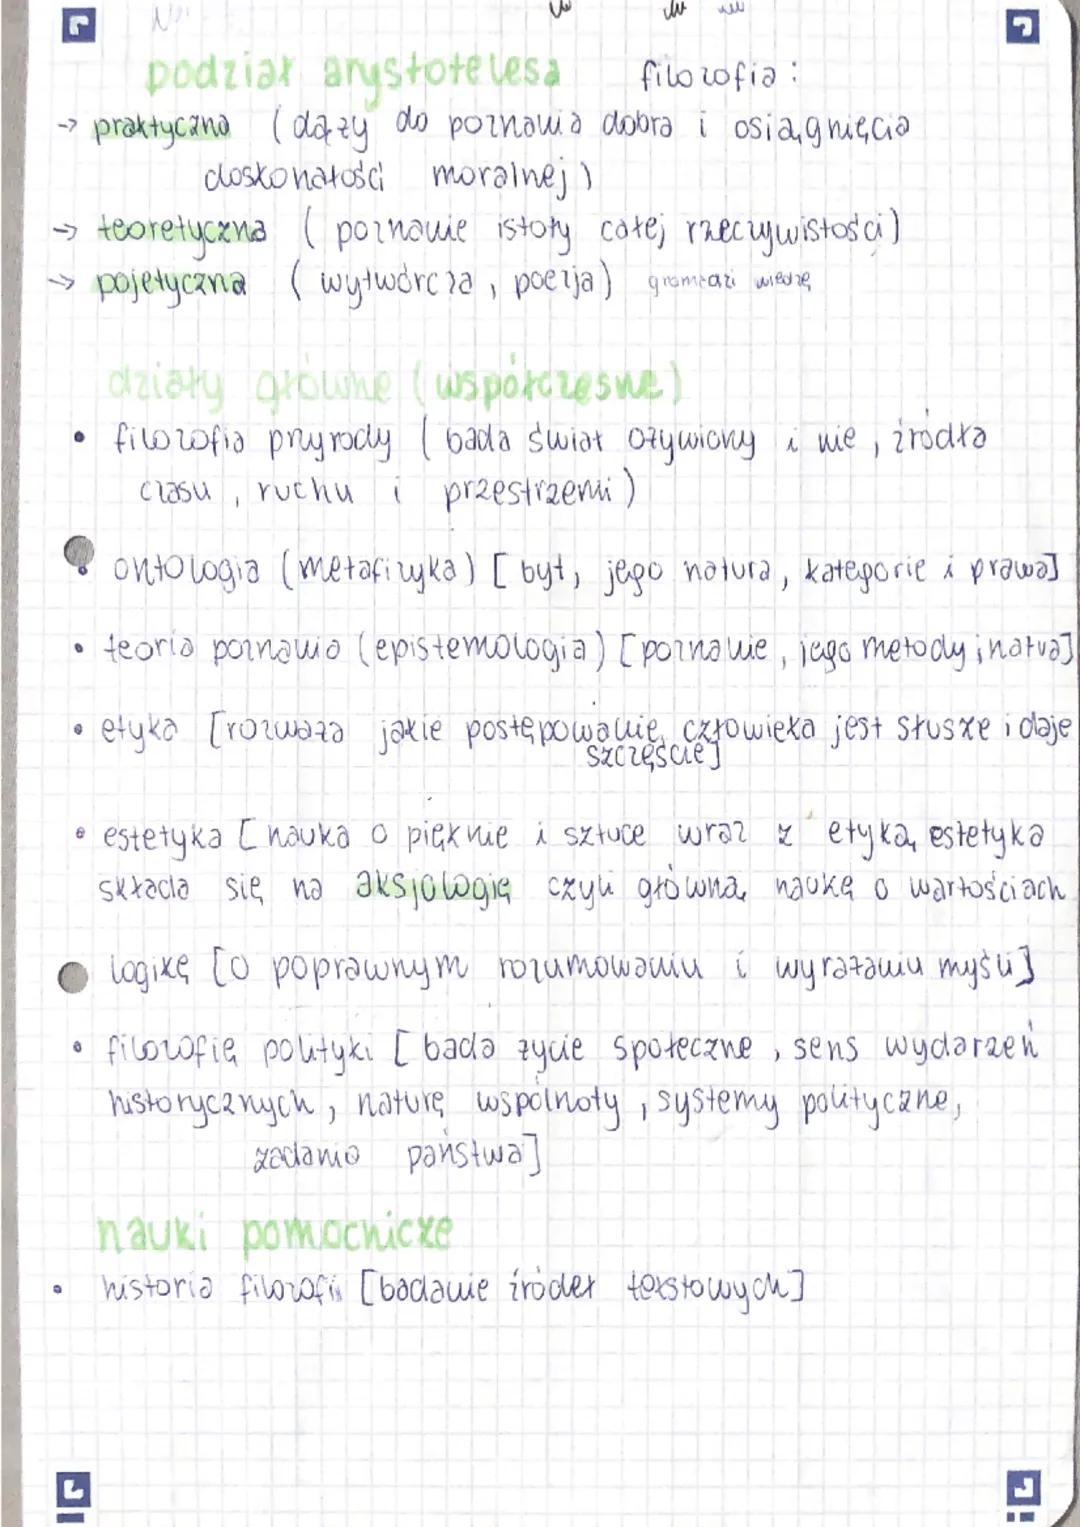 podział arystotelesa filozofia :
→ praktyczna (dąży do poznania dobra i osiągnięcia
doskonałości moralnej)
→ teoretyczna ( poznanie istoty całej rzeczywistości)
→ pojetyczna ( wytwórcza , poezja) gromadzi wiedzę
działy główne (współczesne)
• filozofia przyrody ( bada świat ożywiony i nie , źródła
czasu , ruchu i przestrzeni )
• ontologia (metafizyka) [ byt, jego natura, kategorie i prawa]
• teoria poznania (epistemologia) [poznanie , jego metody i natua]
• etyka [rozważa jakie postępowanie człowieka jest słusze i daje
szczęście]
• estetyka [ nauka o pięknie i sztuce wraz z etyką estetyka
składa się na aksjologię czyli główną naukę o wartościach
logikę [o poprawnym rozumowaniu i wyrażaniu myśli]
• filozofię polityki [ bada życie społeczne , sens wydarzeń
historycznych , naturę wspólnoty , systemy polityczne,
zadania państwa]
nauki pomocnicze
• historia filozofii [badanie źródeł tekstowych]